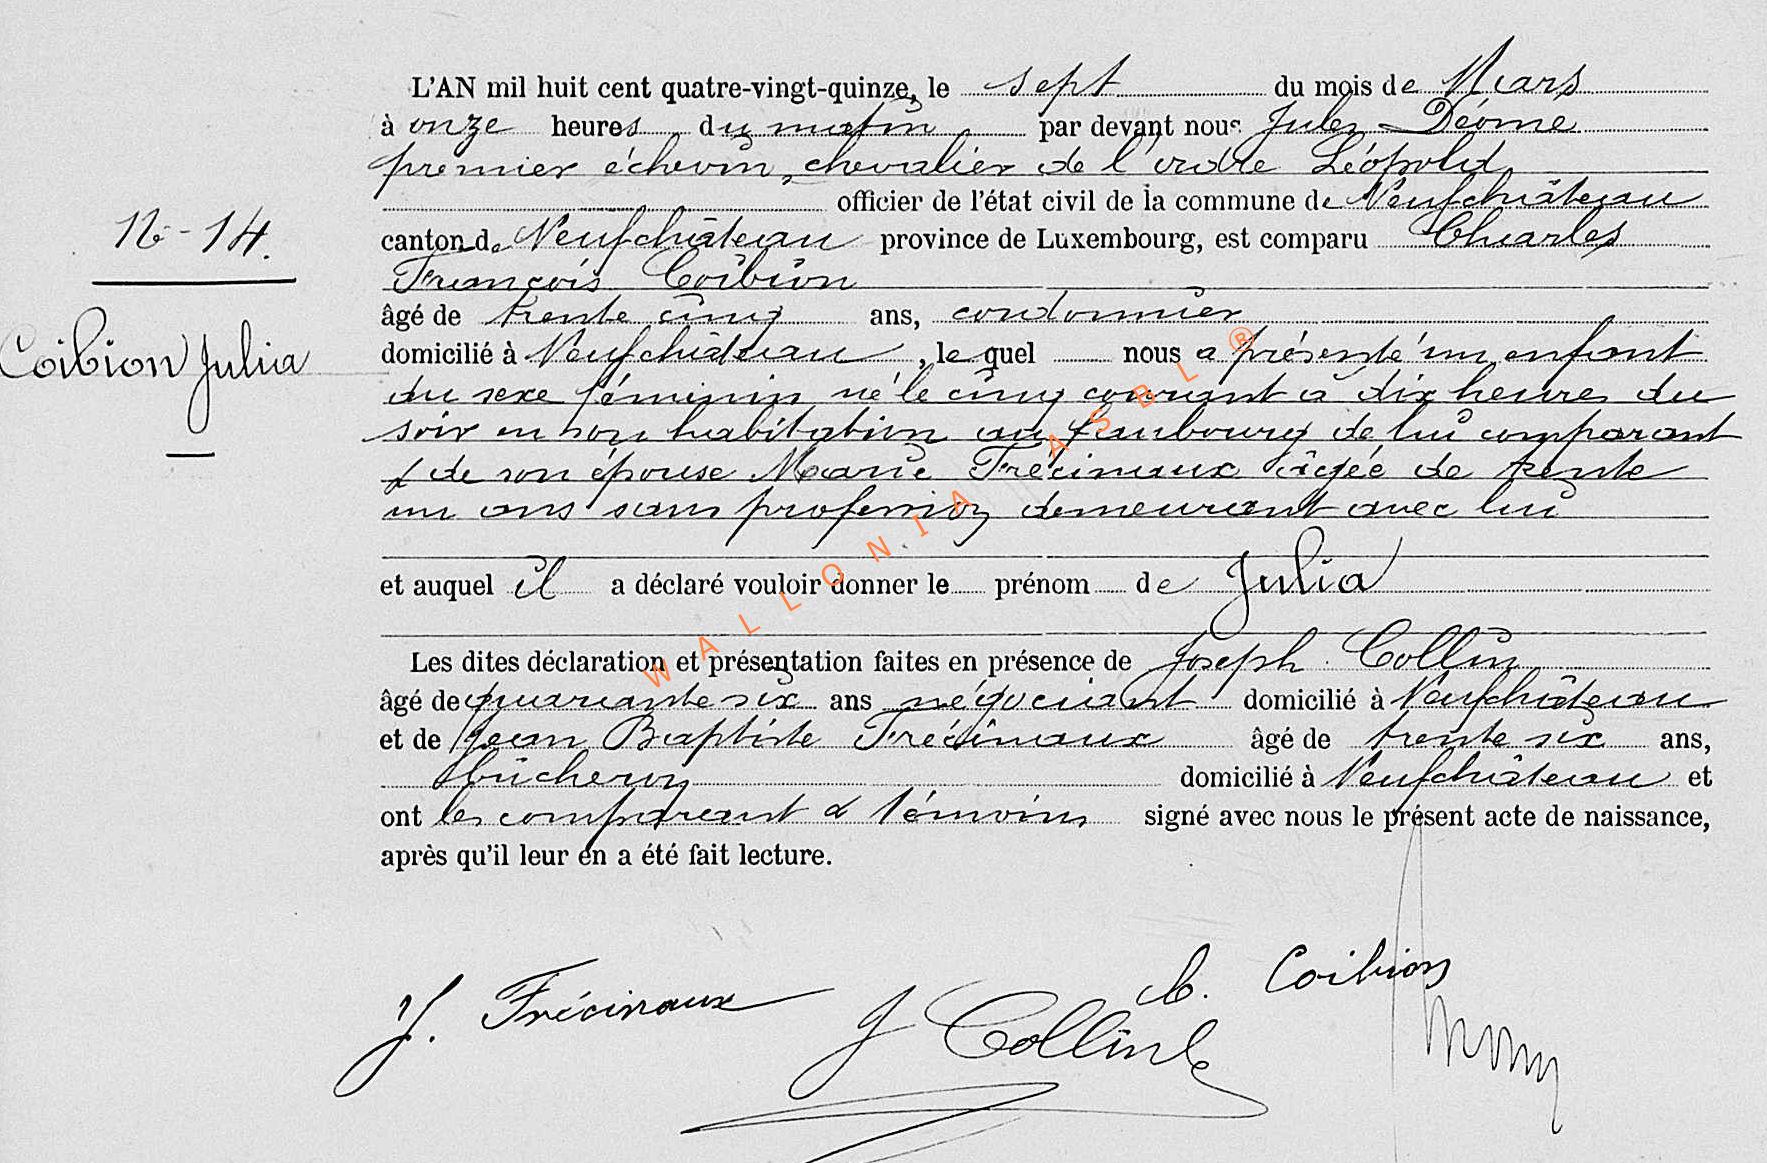 L'AN mil huit cent quatre-vingt-quinze, le sept du mois de Mars
à onze heures du matin par devant nous Jules Déome
premier échevin, chevalier de l'ordre Léopold
officier de l'état civil de la commune de Neufchâteau
N° 14.
canton de Neufchâteau province de Luxembourg, est comparu Charles
François Coibion
âgé de trente cinq ans, cordonnier
Coibion Julia
domicilié à Neufchâteau, lequel nous a présenté un enfant
du sexe féminin né le cinq courant à dix heures du
soir en son habitation au faubourg de lui comparant
& de son épouse Marie Frécinaux âgée de trente
un ans sans profession demeurant avec lui
et auquel il a déclaré vouloir donner le prénom de Julia
Les dites déclaration et présentation faites en présence de Joseph Collin
âgé de quarante six ans négociant domicilié à Neufchâteau
et de Jean Baptiste Frécinaux âgé de trente six ans,
bûcheron domicilié à Neufchâteau et
ont les comparant & témoins signé avec nous le présent acte de naissance,
après qu'il leur en a été fait lecture.
J. Frécinaux J Collin C. Coibion
WALLONIA ASBL ®